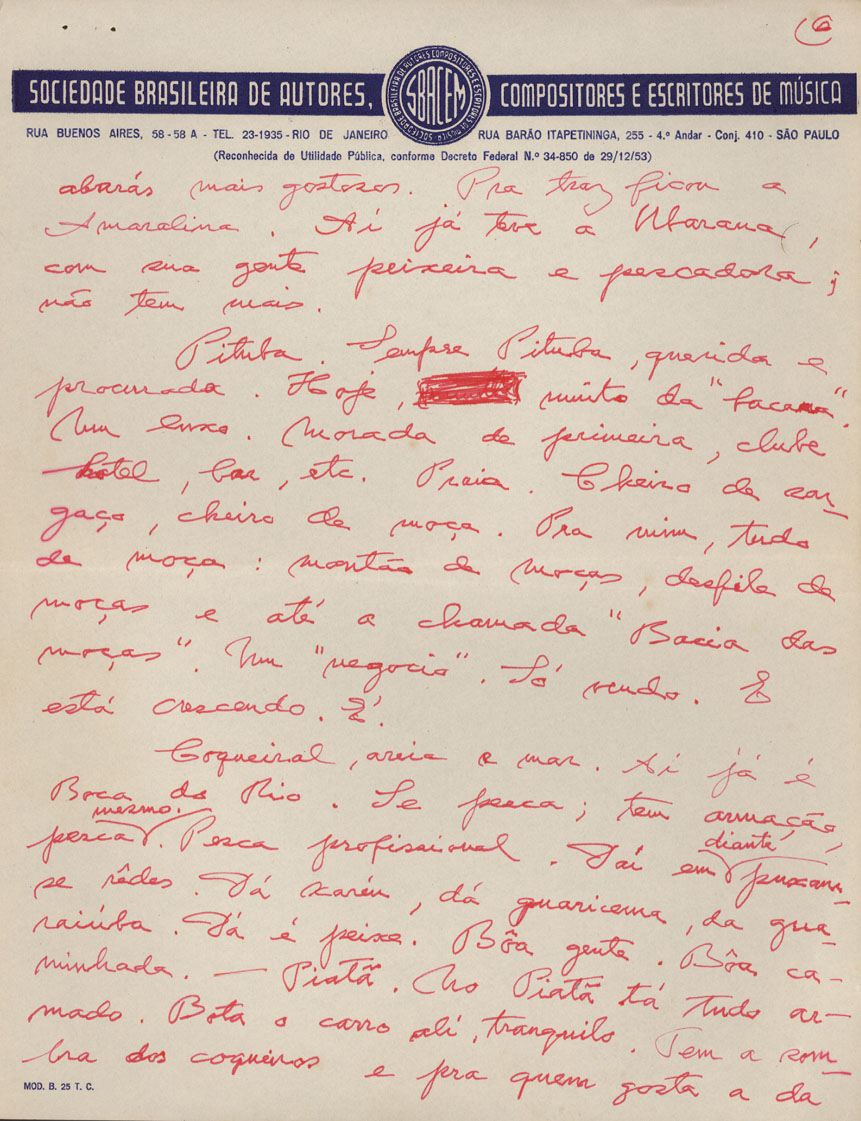 6
SOCIEDADE BRASILEIRA DE AUTORES, SBACEM COMPOSITORES E ESCRITORES DE MÚSICA
RUA BUENOS AIRES, 58-58 A - TEL. 23-1935 - RIO DE JANEIRO RUA BARÃO ITAPETININGA, 255 - 4.º Andar - Conj. 410 - SÃO PAULO
(Reconhecida de Utilidade Pública, conforme Decreto Federal N.º 34-850 de 29/12/53)
abarás mais gostosos. Pra traz ficou a
Amaralina. Aí já teve a Ubarana,
com sua gente peixeira e pescadora;
não tem mais.
Pituba. Sempre Pituba, querida e
procurada. Hoje, muito da "bacana".
Um luxo. Morada de primeira, clube
hotel, bar, etc. Praia. Cheiro de sar-
gaço, cheiro de moça. Pra mim, tudo
de moça: montão de moças, desfile de
moças e até a chamada "Bacia das
moças". Um "negocio". Só vendo. E
está crescendo. É.
Coqueiral, areia e mar. Aí já é
Boca do Rio. Se pesca; tem armação,
pesca mesmo. Pesca profissional. Daí em diante puxam-
se rêdes. Dá xaréu, dá guaricema, da gua-
raiúba. Dá é peixe. Bôa gente. Bôa ca-
minhada. — Piatã. No Piatã tá tudo ar-
mado. Bota o carro ali, tranquilo. Tem a som-
bra dos coqueiros e pra quem gosta a da
MOD. B. 25 T. C.